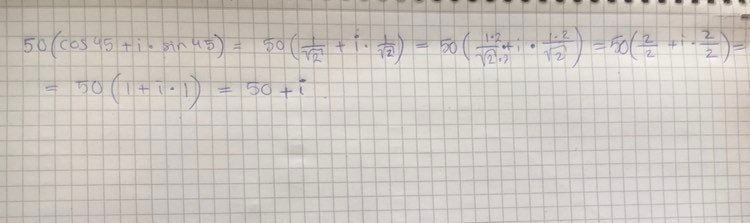 50(cos 45 + i · sin 45) = 50(1/√2 + i · 1/√2) = 50(1·2/√2·2 + i · 1·2/√2) = 50(2/2 + i · 2/2) =
= 50(1 + i · 1) = 50 + i